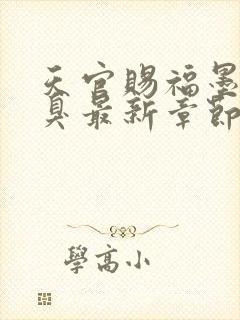 天官賜福墨
臭最新章節
學高小